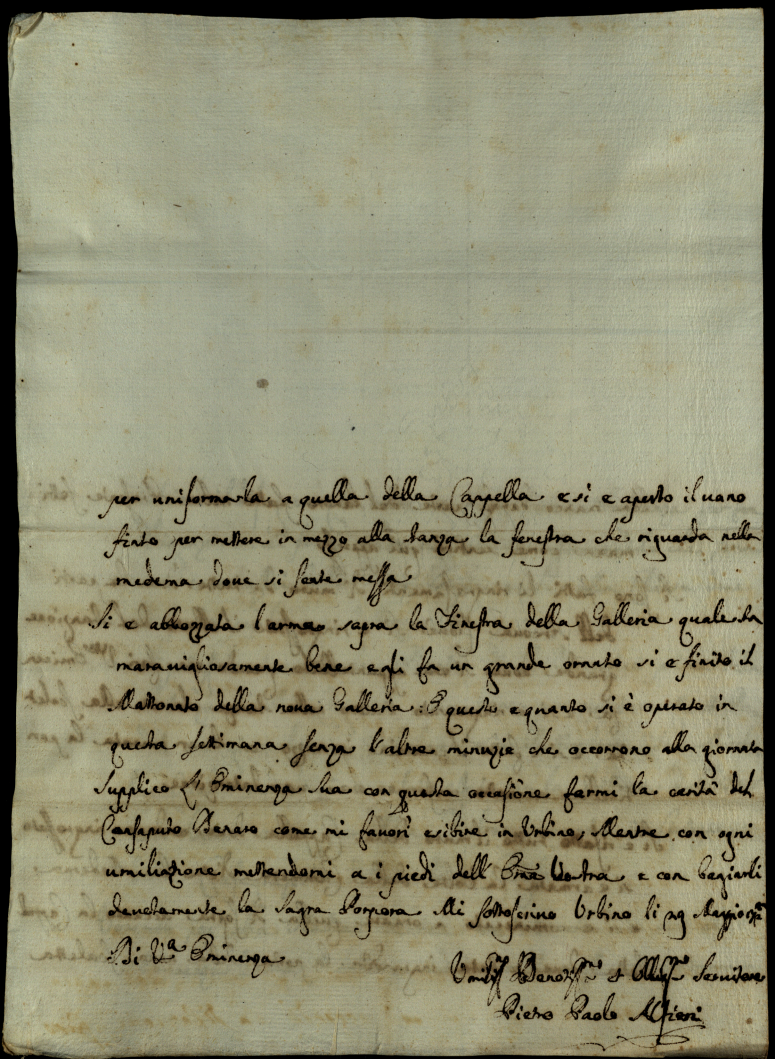 per uniformarla a quella della Cappella e si e aperto il uano
finto per mettere in mezzo alla stanza la fenestra che riguarda nella
medema doue si sente messa
Si e abbozzata l'arme sopra la Finestra della Galleria quale sta
marauigliosamente bene e gli fa un grande ornato si e finito il
Mattonato della noua Galleria: E questo e quanto si è operato in
questa settimana senza l'altre minuzie che occorrono alla giornata
Supplico L'Eminenza Sua con questa occasione farmi la carità del
Consaputo Denaro come mi fauorì esibire in Urbino, Mentre con ogni
umiliazione mettendomi a i piedi dell' Emza Vostra e con bagiarli
deuotamente la Sagra Porpora Mi sottoscriuo Urbino li 29 Maggio
Di V.a Eminenza
Umiliss Deuotissmo et Obligssmo Seruitore
Pietro Paolo Alfieri